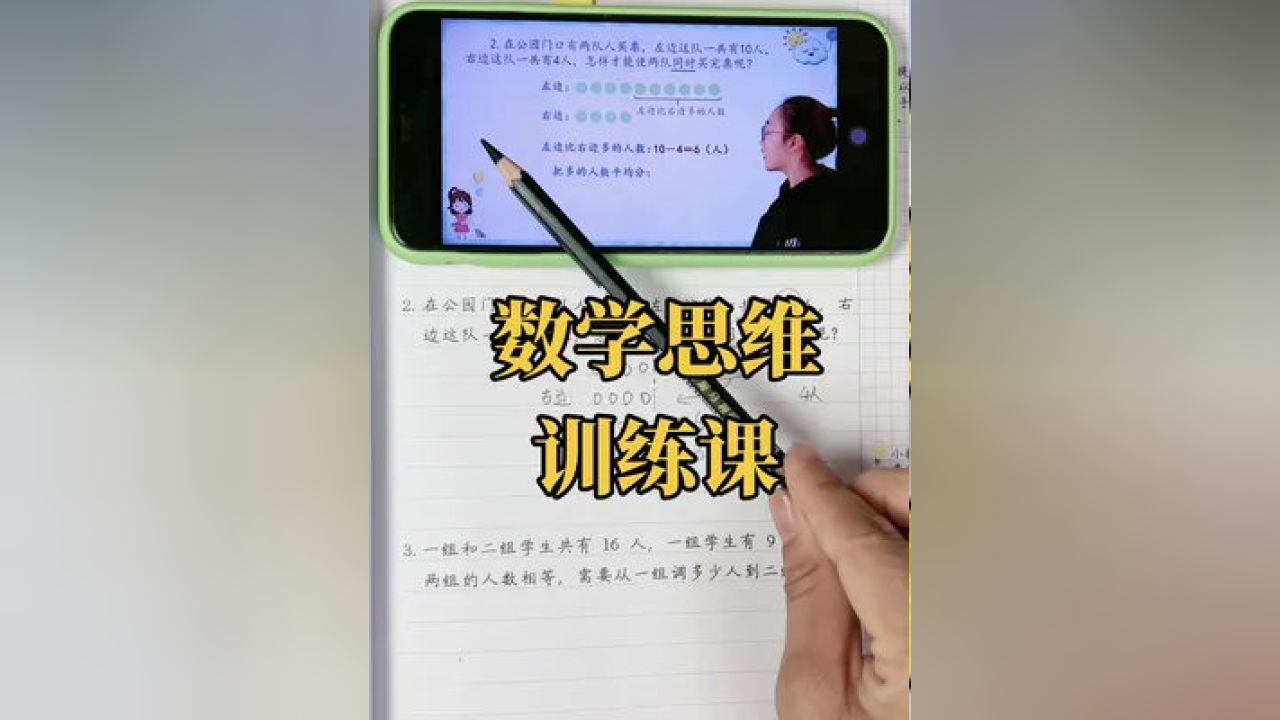 2. 在公园门口有两队人买票，左边这队一共有10人，
右边这队一共有4人，怎样才能使两队同时买完票呢？
左边：
左边比右边多的人数
右边：
左边比右边多的人数：10－4＝6（人）
把多的人数平均分：
2. 在公园门 右
边这队一 ？
数学思维
右边 0000 4人
训练课
3. 一组和二组学生共有 16 人，一组学生有 9
两组的人数相等，需要从一组调多少人到二